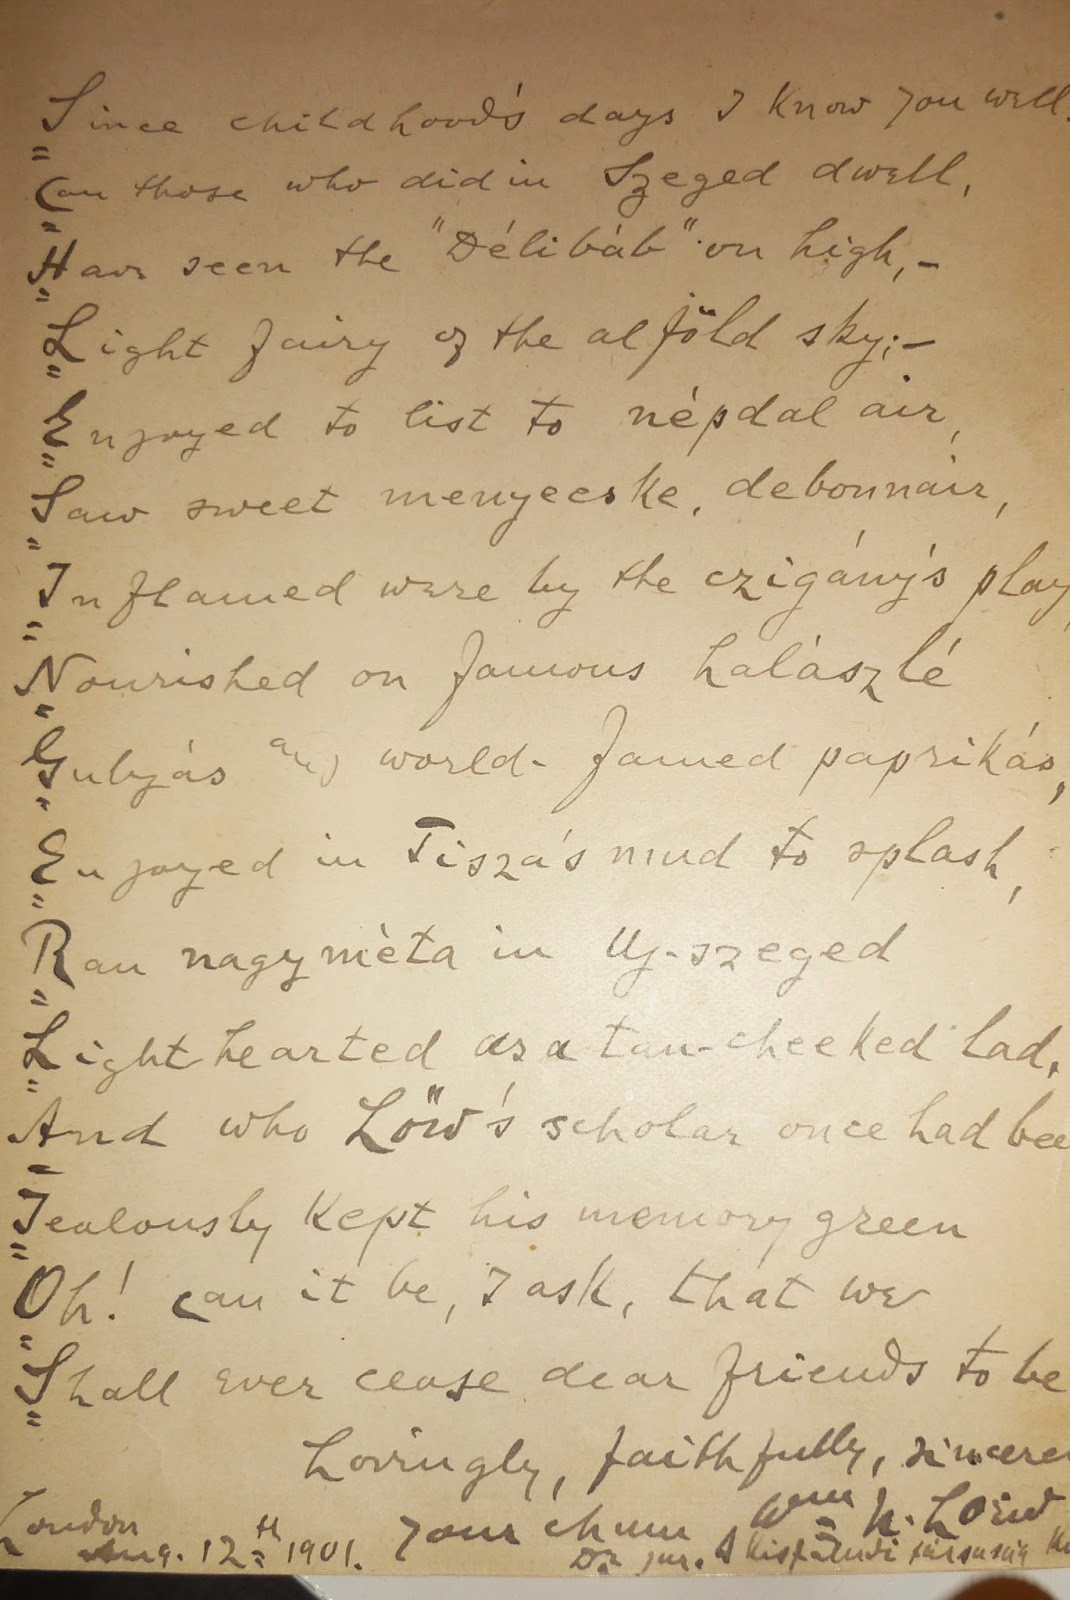 Since childhood's days I know you well.
Can those who did in Szeged dwell,
Have seen the "Délibáb" on high, –
Light fairy of the alföld sky; –
Enjoyed to list to népdal air,
Saw sweet menyecske, debonnair,
Inflamed were by the czigány's play
Nourished on famous halászlé
Gulyás and world-famed paprikás,
Enjoyed in Tisza's mud to splash,
Ran nagymèta in Uj-szeged
Light hearted as a tan-cheeked lad.
And who Löw's scholar once had bee
Jealously kept his memory green
Oh! can it be, I ask, that we
Shall ever cease dear friends to be
Lovingly, faithfully, sincere
Your chum Wm N. Loew
London
Aug. 12th 1901.
Dr jur. A társaság